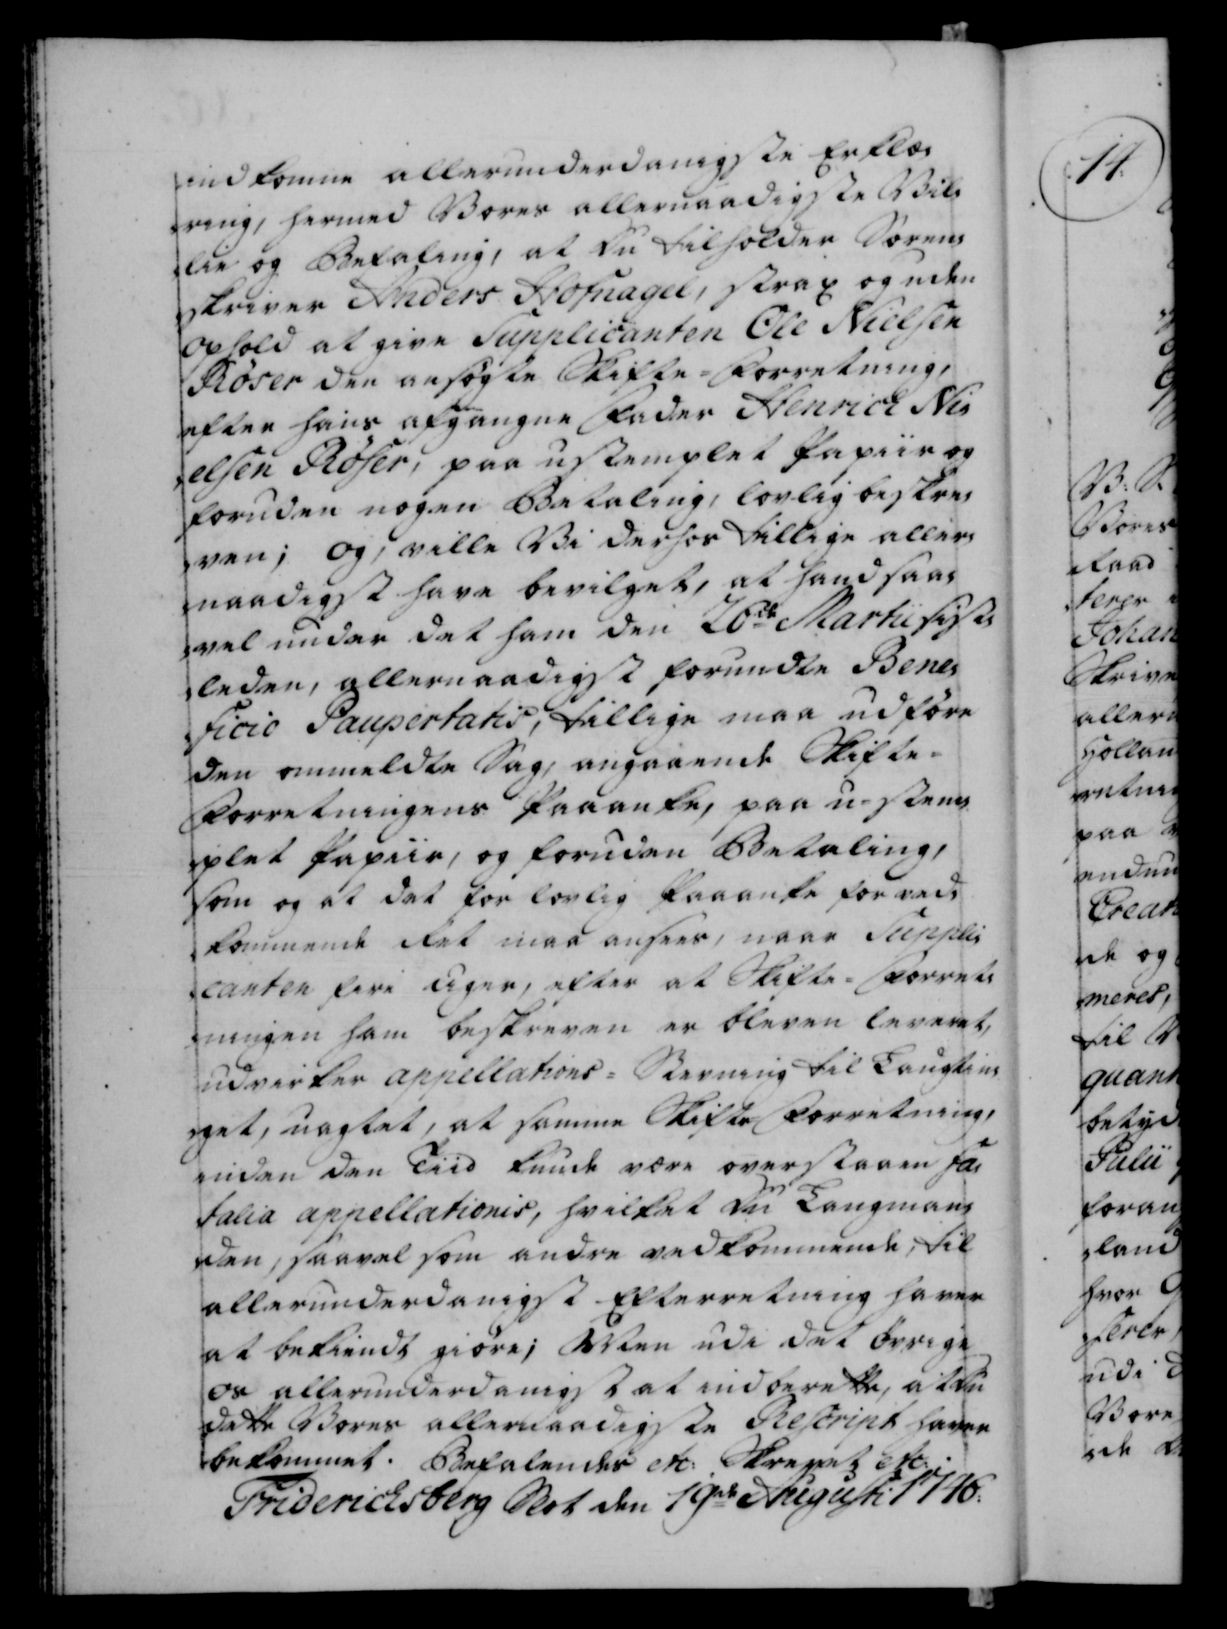 indkomne allerunderdanigste Erklæ-
ring, hermed Vores allernaadigste Vil-
lie og Befaling, at du tilholder Soren-
skriver Anders Hofnagel, strax og uden
ophold at give Supplicanten Ole Nielsen
Röser den ansögte Skifte-Forretning,
efter hans afgangne Fader Henrick Ni-
elsen Röser, paa ustemplet Papiir og
foruden nogen Betaling, lovlig beskre-
ven; og, ville Vi derhos tillige aller-
naadigst have bevilget, at hand saa-
vel under det ham den 26de Martii sidst-
leden, allernaadigst forundte Bene-
ficio Paupertatis, tillige maa udföre
den ommeldte Sag, angaaende Skifte-
Forretningens Paaanke, paa u-stem-
plet Papiir, og foruden Betaling,
som og at det for lovlig Paaanke for ved-
kommende Ret maa ansees, naar Suppli-
canten fire Uger, efter at Skifte-Forret-
ningen ham beskreven er bleven leveret,
udvirker appellations-Stevning til Laugtin-
get, uagtet, at samme Skifte Forretning,
inden den Tiid kunde være overstaaen fa-
talia appellationis, hvilket du Laugman-
den, saavel som andre vedkommende, til
allerunderdanigst Efterretning haver
at bekiendt giöre; Men udi det övrige
os allerunderdanigst at indberette, at du
dette Vores allernaadigste Rescript haver
bekommet. Befalendes etc: Skrevet etc:
Fridericksberg Slot den 19de Augusti 1746.
14.
V: S.
Vores
raad
Johan
Skrive
allern
Hollan
retnin
paa
endnu
Creat
de og
meres,
til V
quan
betyd
Julii
foran
land
hvor
udi
Vore
de